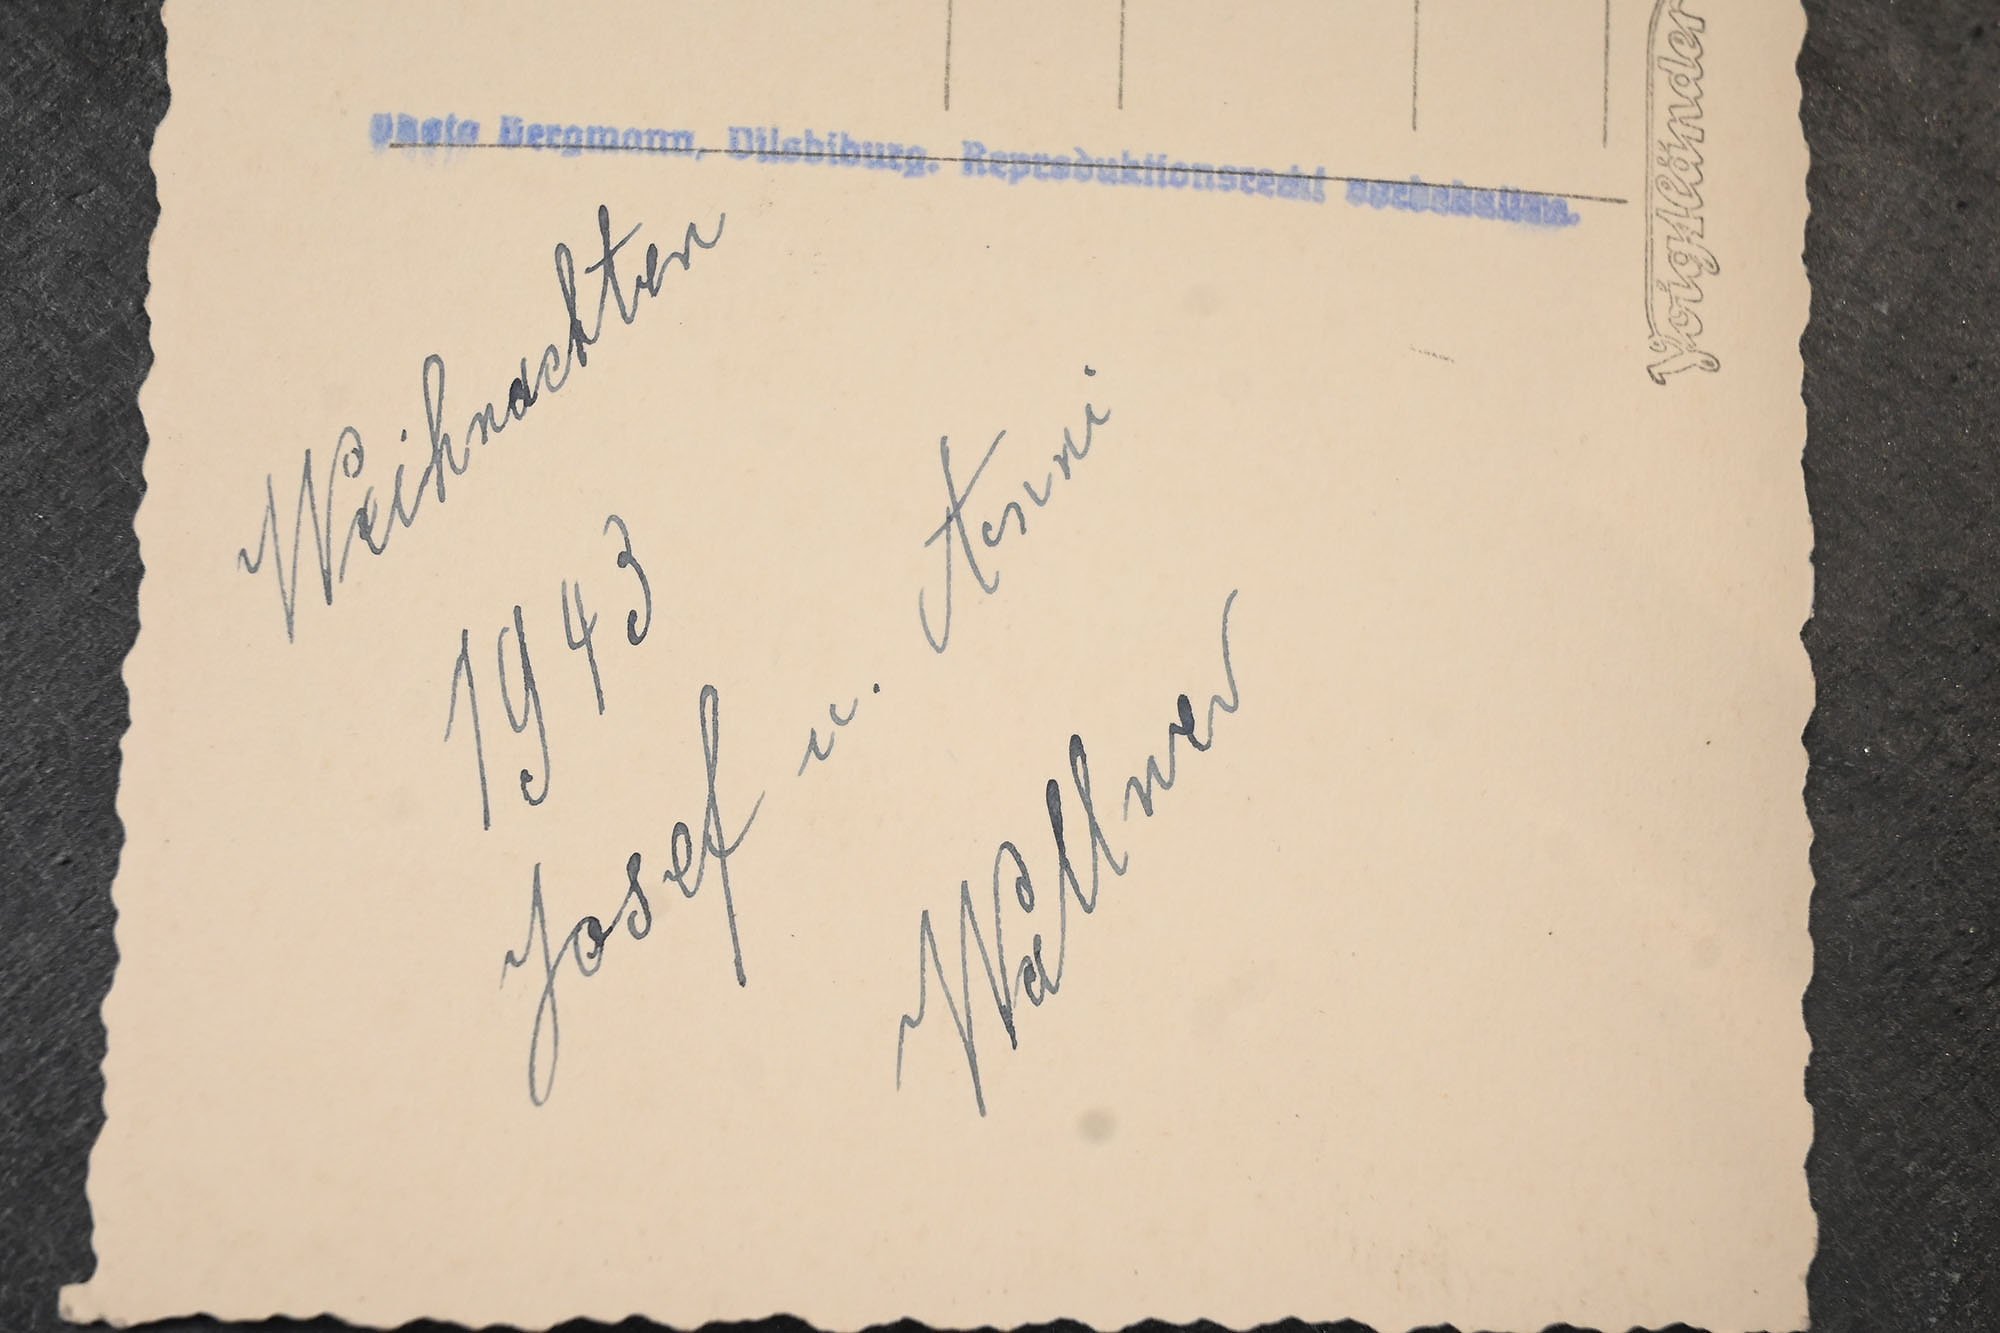 Photo Bergmann, Vilsbiburg. Reproduktionsrecht vorbehalten.
Voigtländer
Weihnachten
1943
Josef u. Anni
Wallner